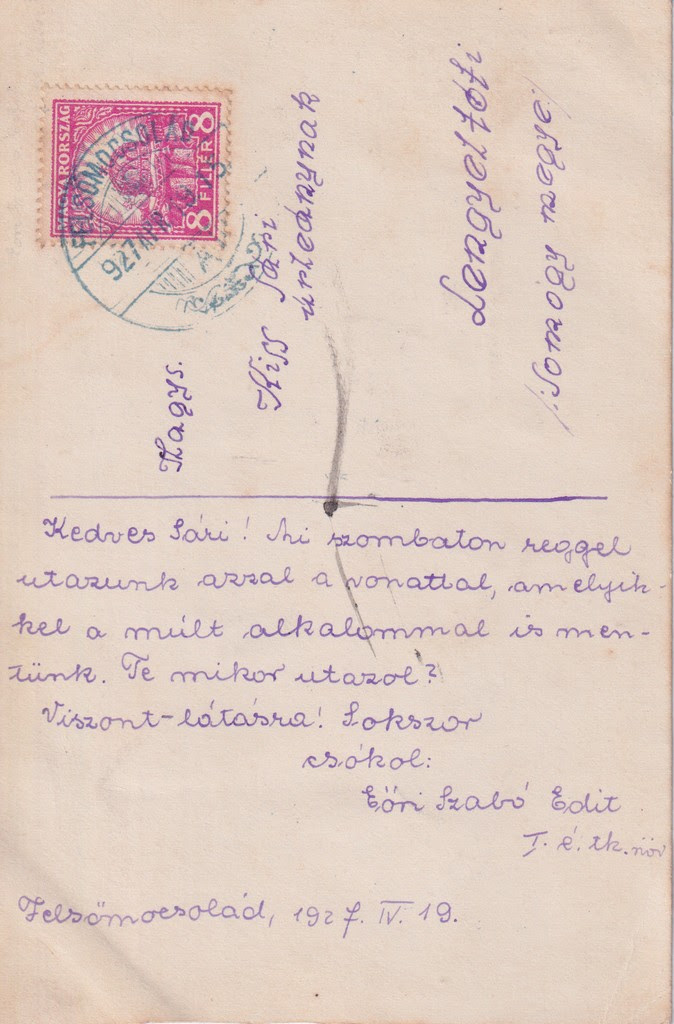 MAGYARORSZÁG
8 FILLÉR 8
FELSŐMOCSOLÁD
927 APR 19
Nagys.
Kiss Sári
úrleánynak
Lengyeltóti
/:Somogy megye:/
Kedves Sári! Mi szombaton reggel
utazunk azzal a vonattal, amelyik-
kel a múlt alkalommal is men-
tünk. Te mikor utazol?
Viszont-látásra! Sokszor
csókol:
Eőri Szabó Edit
I. é. tk. növ
Felsőmocsolád, 1927. IV. 19.